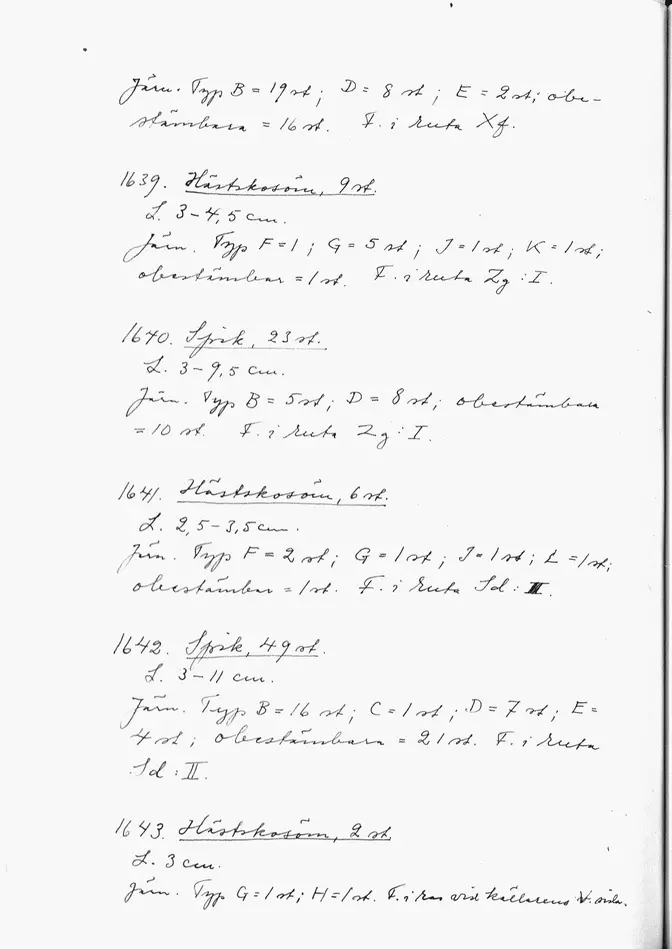 Järn. Typ B = 19 st; D = 8 st; E = 2 st; obe-
stämbara = 16 st. F. i ruta Xf.
1639. Hästskosöm, 9 st.
L. 3-4,5 cm.
Järn. Typ F = 1; G = 5 st; J = 1 st; K = 1 st;
obestämbar = 1 st. F. i ruta Zg: I.
1640. Spik, 23 st.
L. 3-9,5 cm.
Järn. Typ B = 5 st; D = 8 st; obestämbara
= 10 st. F. i ruta Zg: I.
1641. Hästskosöm, 6 st.
L. 2,5-3,5 cm.
Järn. Typ F = 2 st; G = 1 st; J = 1 st; L = 1 st;
obestämbar = 1 st. F. i ruta Sd: II.
1642. Spik, 49 st.
L. 3-11 cm.
Järn. Typ B = 16 st; C = 1 st; D = 7 st; E =
4 st; obestämbara = 21 st. F. i ruta
Sd: II.
1643. Hästskosöm, 2 st.
L. 3 cm.
Järn. Typ G = 1 st; H = 1 st. F. i ras vid källarens V. sida.